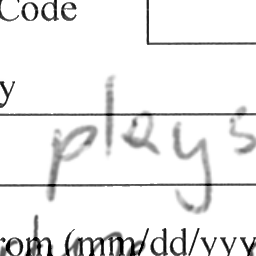 Code
y
plays
rom (mm/dd/yyy